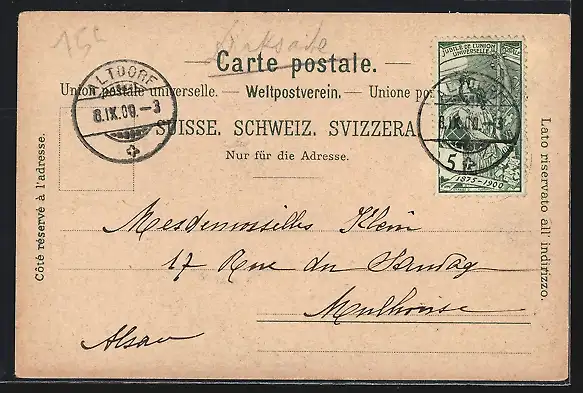 15.-
Carte postale.
Union postale universelle. — Weltpostverein. — Unione po
SUISSE. SCHWEIZ. SVIZZERA
Nur für die Adresse.
Côté réservé à l'adresse.
Lato riservato all' indirizzo.
ALTDORF
8.IX.00.-3
JUBILÉ DE L'UNION
UNIVERSELLE
1875-1900
8.IX.00.-3
5
Mesdemoiselles Klein
17 Rue du Sundag
Mulhouse
Alsace